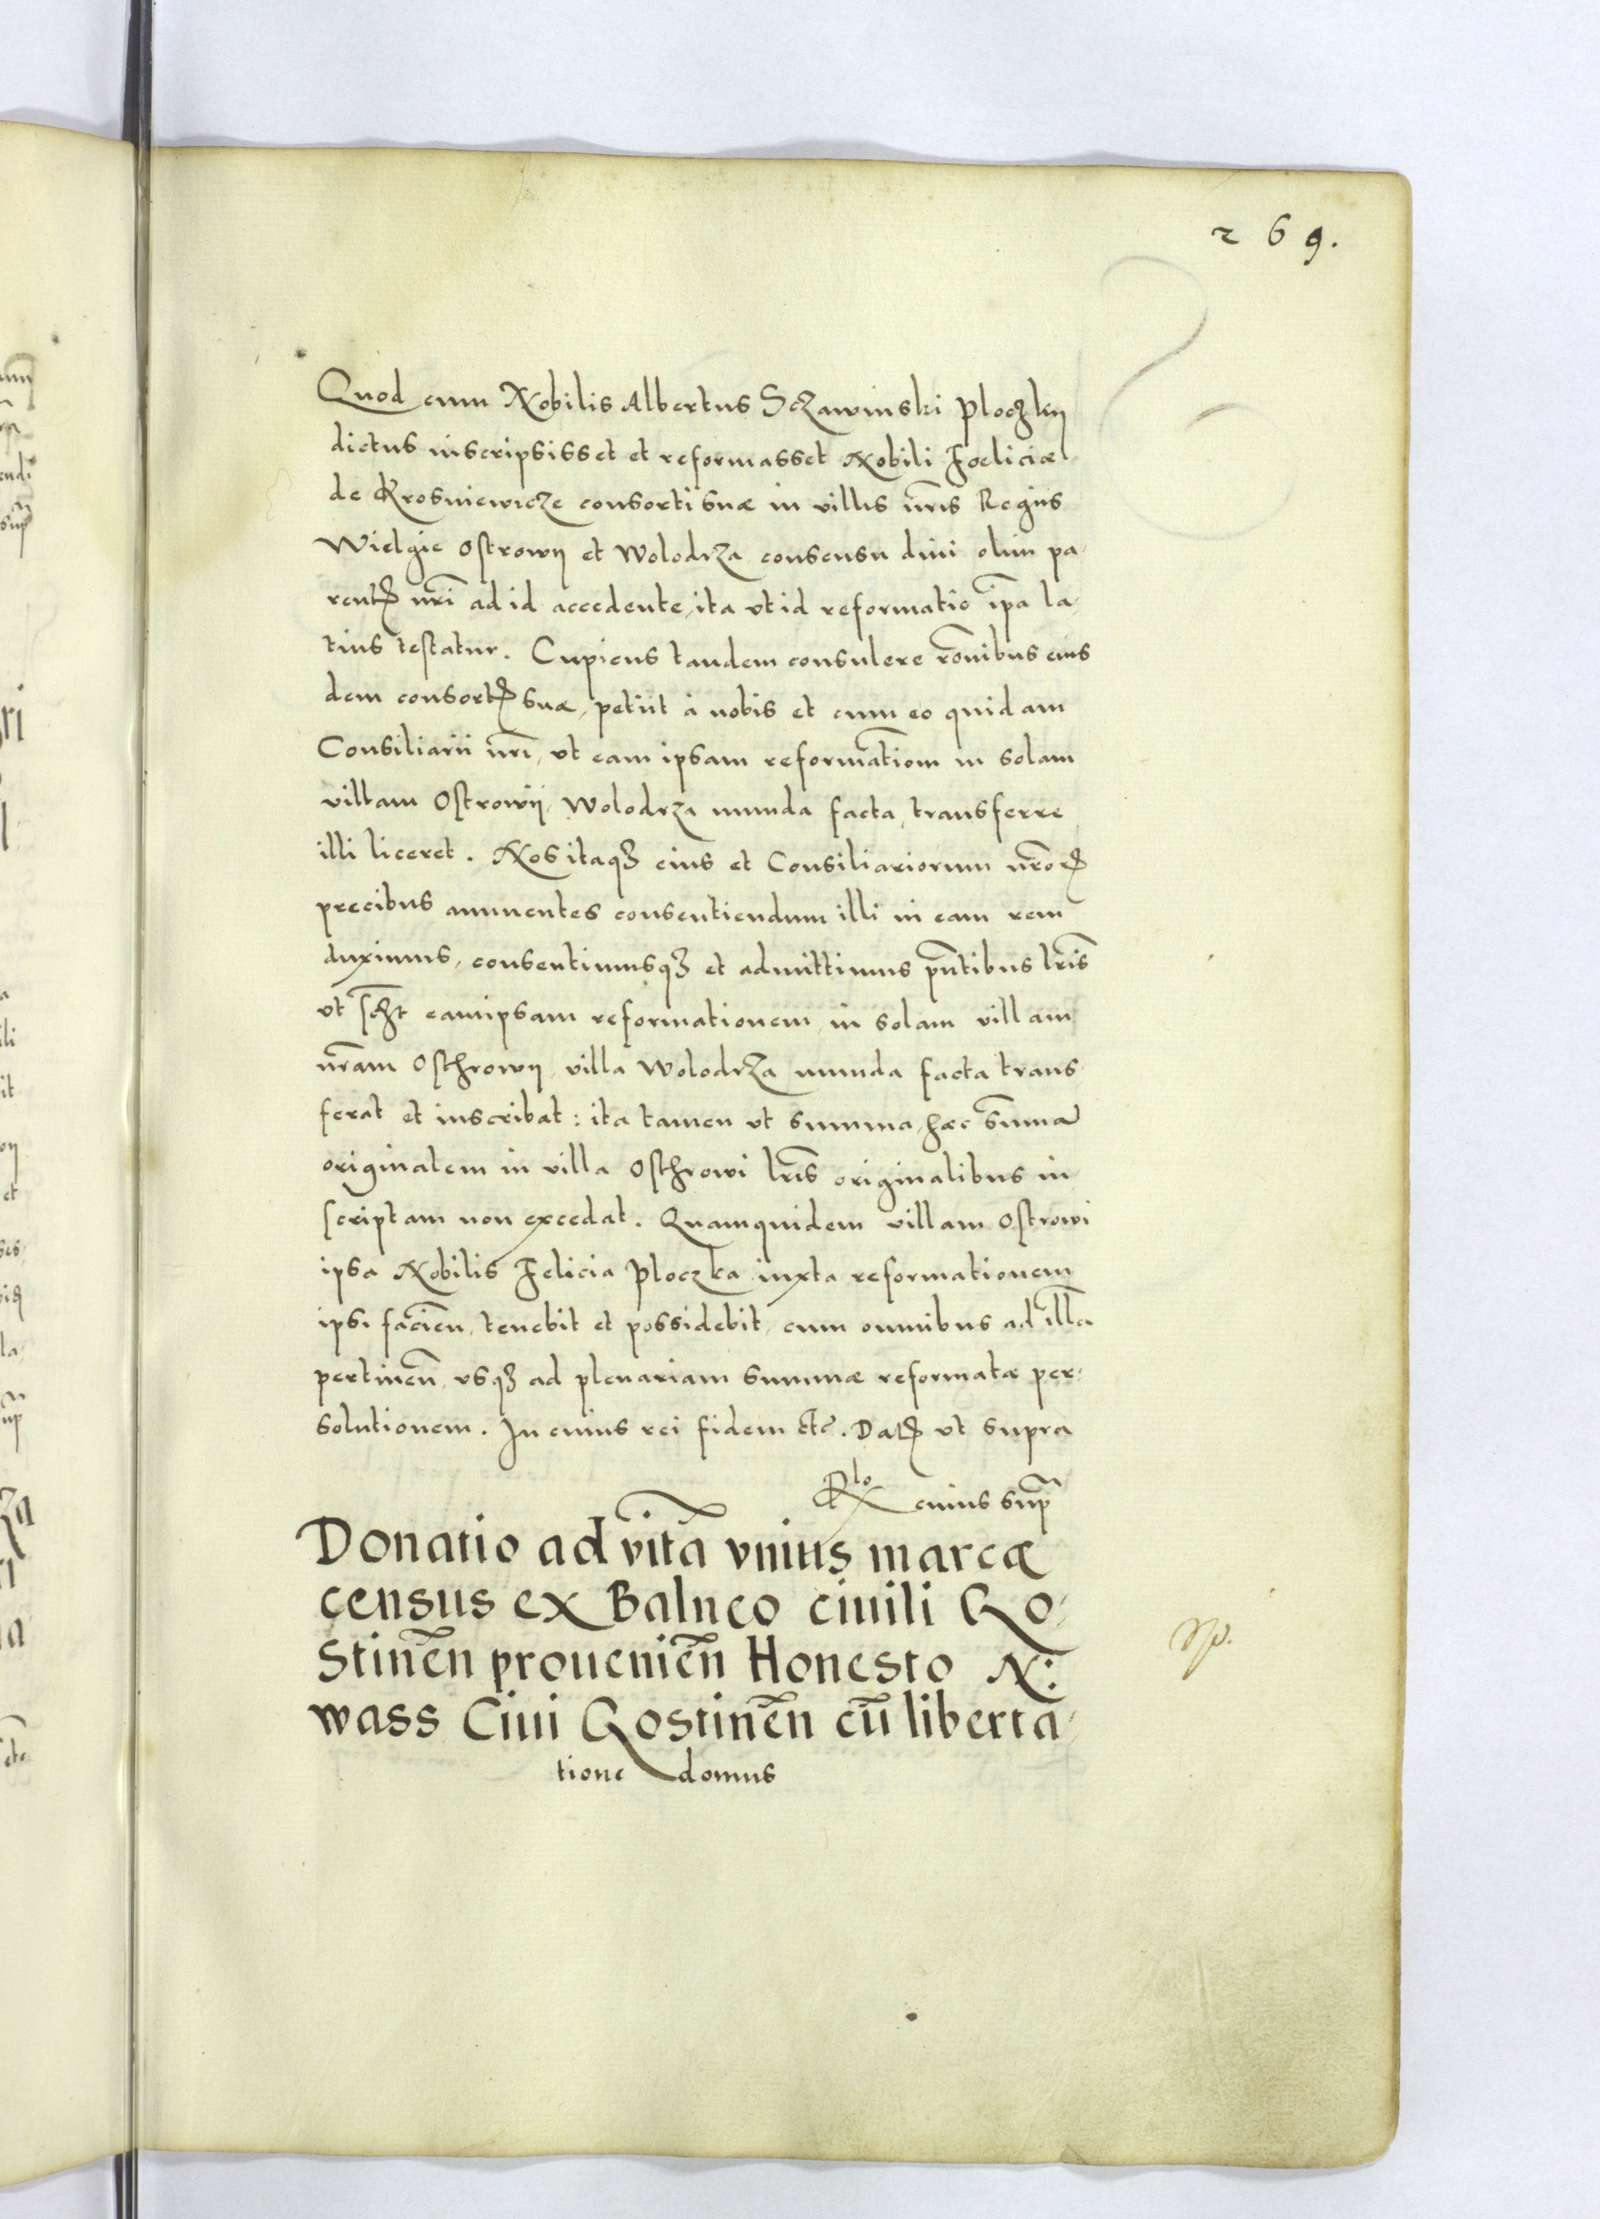 269.
Quod cum Nobilis Albertus Sczawinski Ploczkij
dictus inscripsisset et reformasset Nobili Foeliciæ
de Krosniewicze consorti suæ in villis nr̃is Regijs
Wielgie Ostrowij et Wolodrza consensu diui olim pa-
rentꝭ nr̃i ad id accedente, ita vt id reformatio ip̃a la-
tius testatur. Cupiens tandem consulere rõnibus eius
dem consortꝭ suæ, petijt à nobis et cum eo quidam
Consiliarii nr̃i, vt eam ipsam reformatiõem in solam
villam Ostrowij, Wolodrza munda facta, transferre
illi liceret. Nos itaqꝫ eius et Consiliariorum nr̃oꝝ
precibus annuentes consentiendum illi in eam rem
duximus, consentimusqꝫ et admittimus pñtibus lr̃is
vt sczt eamipsam reformationem, in solam villam
nr̃am Osthrowij, villa Wolodrza munda facta trans
ferat et inscribat: ita tamen vt summa, hæc sum̃ã
originalem in villa Osthrowi lr̃is originalibus in
scriptam non excedat. Quamquidem villam Ostrowi
ipsa Nobilis Felicia Ploczka iuxta reformationem
ipsi facieñ, tenebit et possidebit, cum omnibus ad illã
pertineñ, vsqꝫ ad plenariam summæ reformatæ per-
solutionem. In cuius rei fidem etc̃. Datꝭ vt supra
Rlo cuius sup̃
Donatio ad vitã vnius marcæ
census ex Balneo ciuili Go-
stineñ proueniẽn Honesto N:
wass Ciui Gostineñ cũ liberta-
tione domus